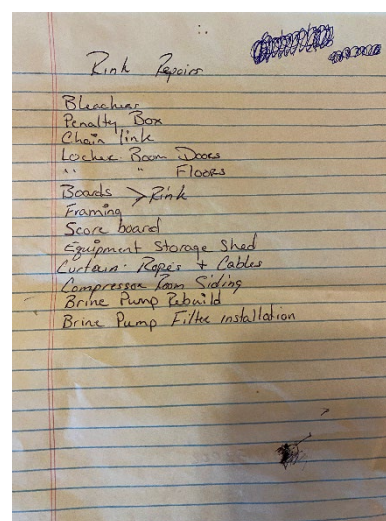 Rink Repairs
Bleachers
Penalty Box
Chain link
Locker Room Doors
" " Floors
Boards > Rink
Framing
Score board
Equipment Storage Shed
Curtain: Ropes + Cables
Compressor Room Siding
Brine Pump Rebuild
Brine Pump Filter installation